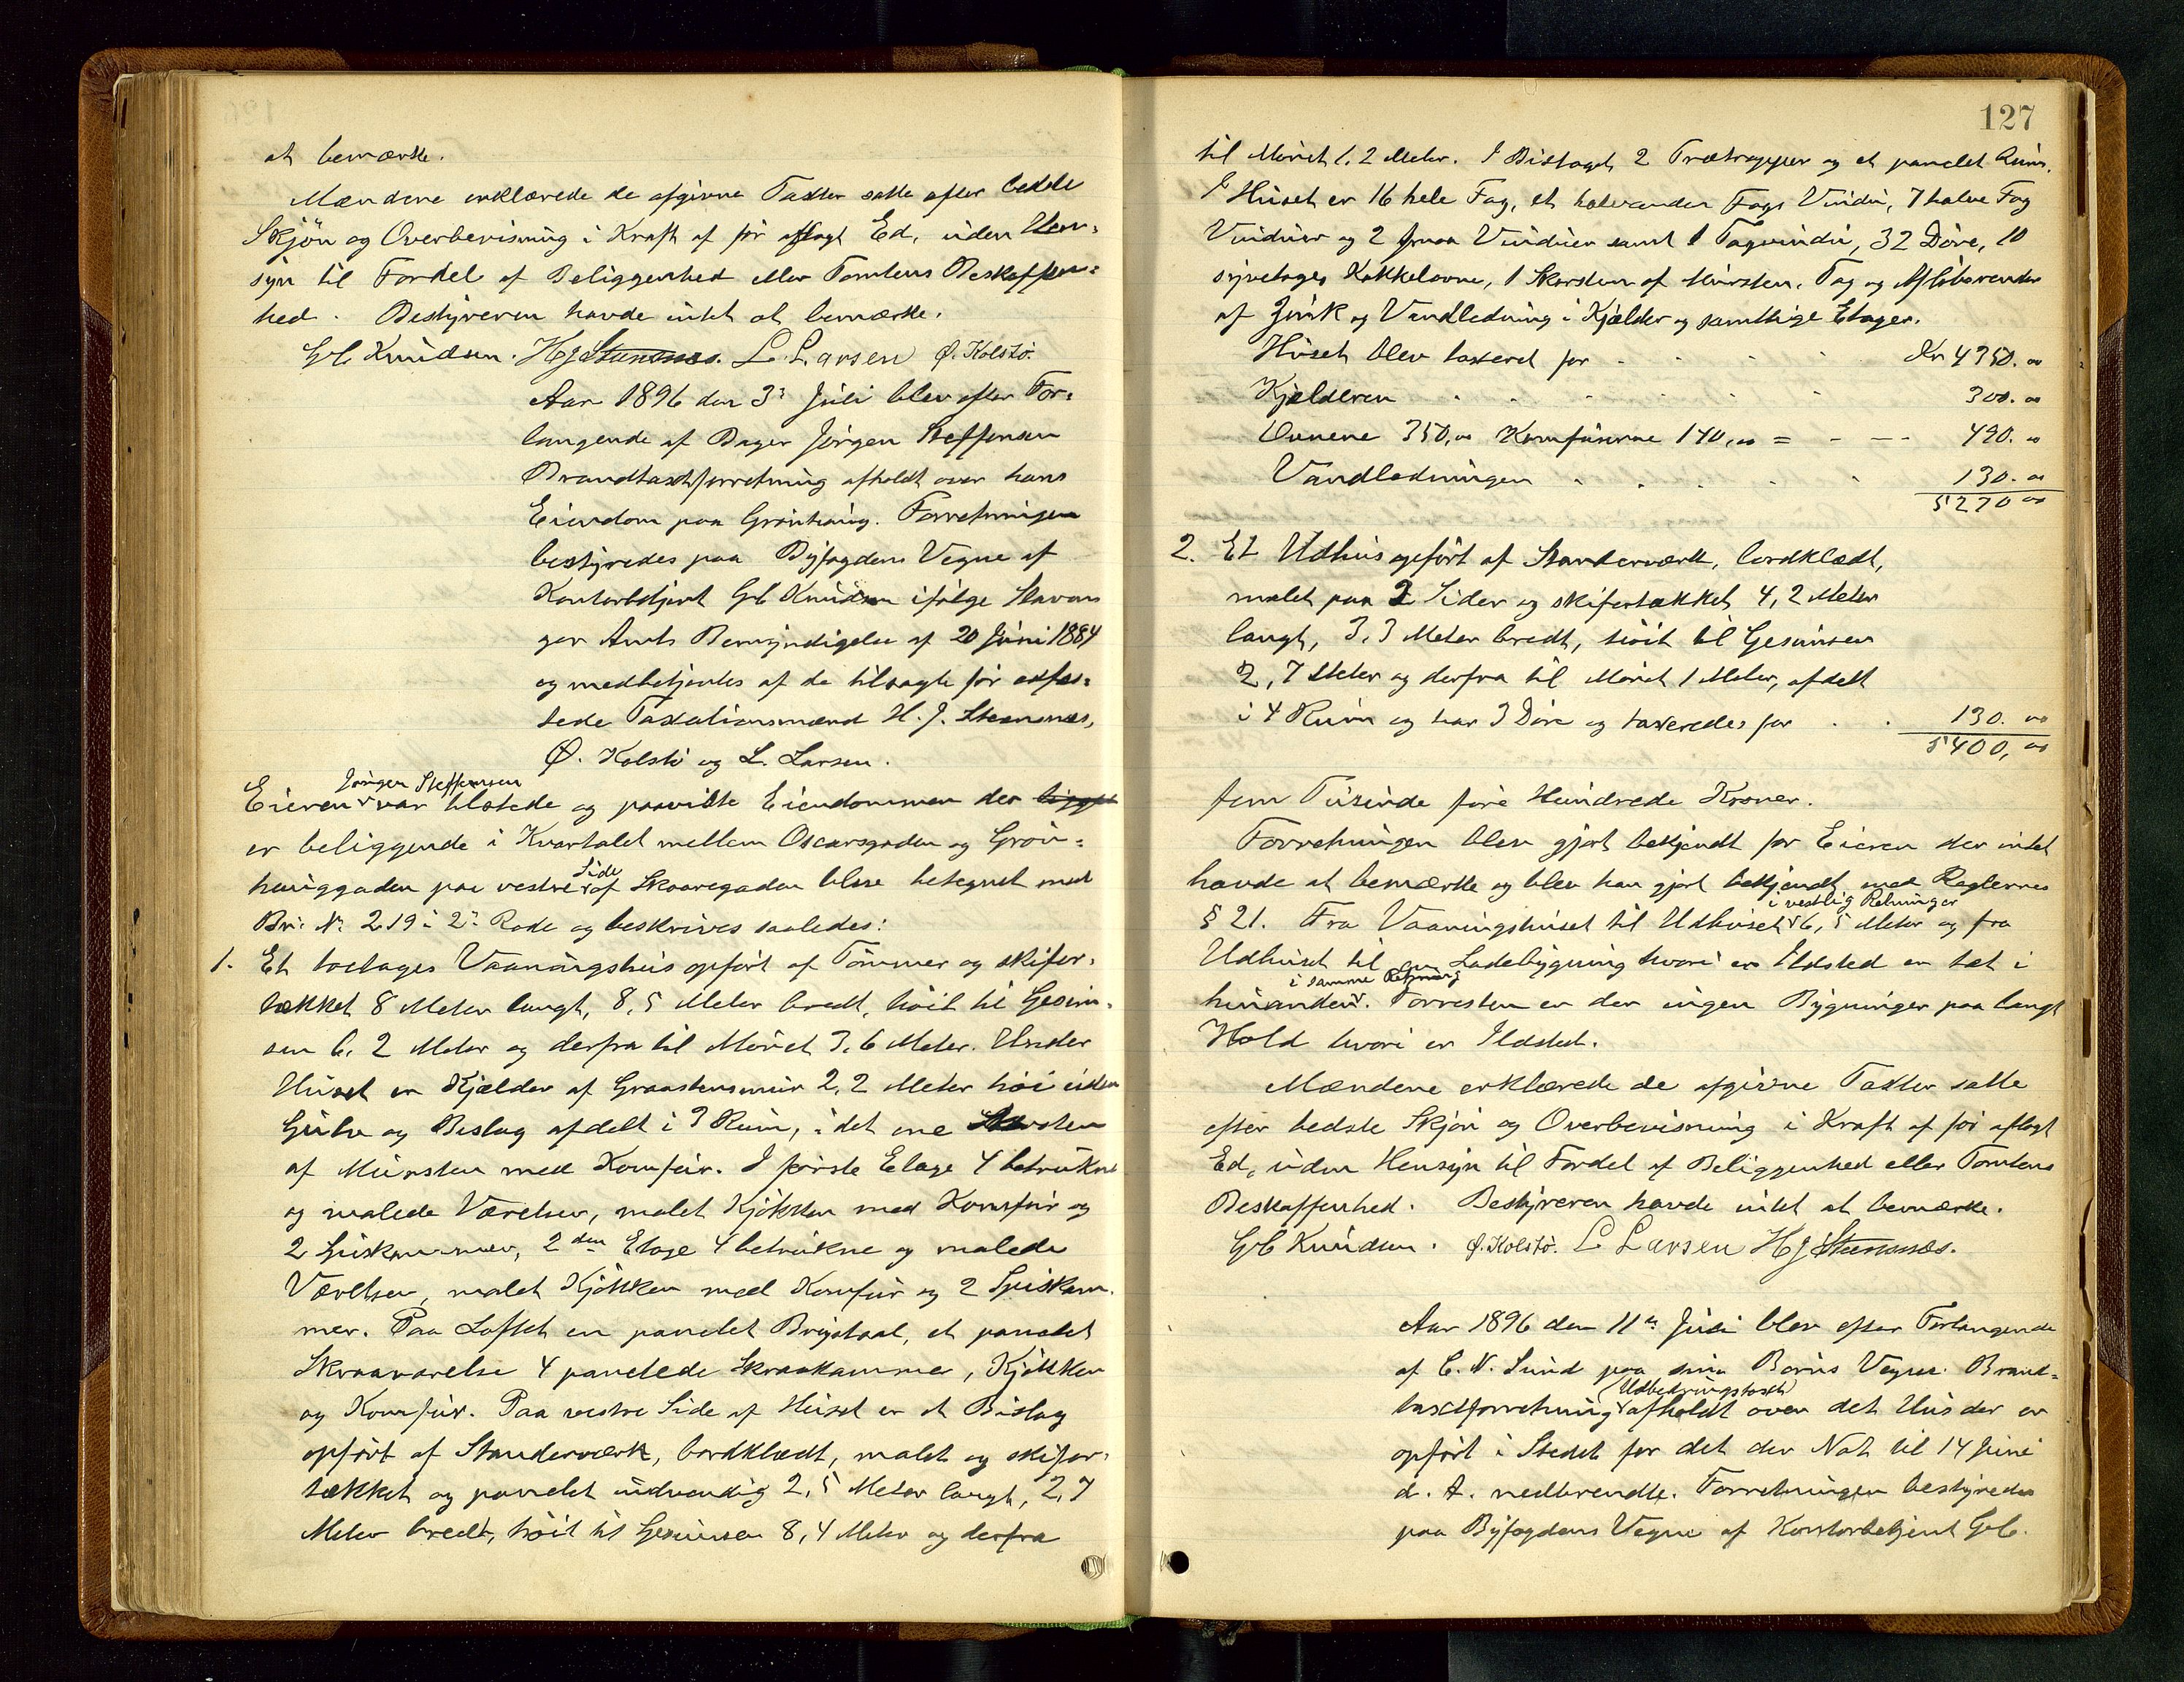 at bemærke.
Mændene erklærede de afgivne Taxter satte efter bedste
Skjön og Overbevisning i Kraft af för aflagt Ed, uden Hen-
syn til Fordel af Beliggenhed eller Tomtens Beskaffen-
hed. Bestyreren havde intet at bemærke.
G C Knudsen. H J Stensnæs. L Larsen Ø. Kolstø.
Aar 1896 den 3' Juli blev efter For-
langende af Bager Jörgen Steffensen
Brandtaxtforretning afholdt over hans
Eiendom paa Grönhaug. Forretningen
bestyredes paa Byfogdens Vegne af
Kontorbetjent G C Knudsen ifölge Stavan
ger Amts Bemyndigelse af 20 Juni 1884
og medbetjentes af de tilsagte för edfæs-
tede Taxationsmænd H. J. Stensnæs,
Ø. Kolstö og L. Larsen.
Jörgen Steffensen
Eieren var tilstede og paaviste Eiendommen der ligger
er beliggende i Kvartalet mellem Oscarsgaden og Grön-
Side
hauggaden paa vestre af Skaaregaden blive betegnet med
Br. No 219 i 2' Rode og beskrives saaledes:
1. Et toetages Vaaningshus opfört af Tömmer og skifer-
tækket 8 Meter langt, 8,5 Meter bredt, höit til Gesim-
sen 6,2 Meter og derfra til Mönet 3,6 Meter. Under
Huset er Kjælder af Graastensmur 2,2 Meter höi uden
Gulv og Beslag afdelt i 3 Rum, i det ene Skorsten
af Mursten med Komfur. I förste Etage 4 betrukne
og malede Værelser, malet Kjökken med Komfur og
2 Spiskammer, 2den Etage 4 betrukne og malede
Værelser, malet Kjökken med Komfur og 2 Spiskam-
mer. Paa Loftet en panelet Brystaal, et panelet
Skraaværelse 4 panelede Skraakammer, Kjökken
og Komfur. Paa vestre Side af Huset er et Bislag
opfört af Standerværk, bordklædt, malet og skifer-
tækket og panelet indvendig 2,5 Meter langt, 2,7
Meter bredt, höit til Gesimsen 8,4 Meter og derfra
127
til Mönet 1.2 Meter. I Bislaget 2 Trætrapper og et panelet Rum.
I Huset er 16 hele Fag, et halvanden Fags Vindu, 7 halve Fag
Vinduer og 2 smaa Vinduer samt 1 Tagvindu, 32 Döre, 10
Kakkelovne, 1 Skorsten af Mursten. Tag og Aflöbsrender
af Zink og Vandledning i Kjælder og samtlige Etager.
Huset blev taxeret for Kr 4350. 00
Kjælderen 300. 00
Ovnene 350,00 Komfurerne 140,00 = 490. 00
Vandledningen 130. 00
5270 00
2. Et Udhus opfört af Standerværk, bordklædt,
malet paa 2 Sider og skifertækket 4,2 Meter
langt, 3.3 Meter bredt, höit til Gesimsen
2,7 Meter og derfra til Mönet 1 Meter, afdelt
i 4 Rum og har 3 Döre og taxeredes for 130. 00
5400, 00
fem Tusinde fire Hundrede Kroner.
Forretningen blev gjort bekjendt for Eieren der intet
havde at bemærke og blev han gjort bekjendt med Reglernes
i vestlig Retninger
§ 21. Fra Vaaningshuset til Udhuset 6,5 Meter og fra
Udhuset til en Ladebygning hvori er Ildsted er tæt i
i samme Retning
hinanden. Forresten er der ingen Bygninger paa langt
Hold hvori er Ildsted.
Mændene erklærede de afgivne Taxter satte
efter bedste Skjön og Overbevisning i Kraft af för aflagt
Ed, uden Hensyn til Fordel af Beliggenhed eller Tomtens
Beskaffenhed. Bestyreren havde intet at bemærke.
G C Knudsen. Ø. Kolstø. L Larsen H J Stensnæs.
Aar 1896 den 11te Juli blev efter Forlangende
af C. N. Lund paa sine Börns Vegne Brand-
(Udbedringstaxt)
taxtforretning afholdt over det Hus der er
opfört i Stedet for det der Nat til 14 Juni
d. A. nedbrendte. Forretningen bestyredes
paa Byfogdens Vegne af Kontorbetjent G C